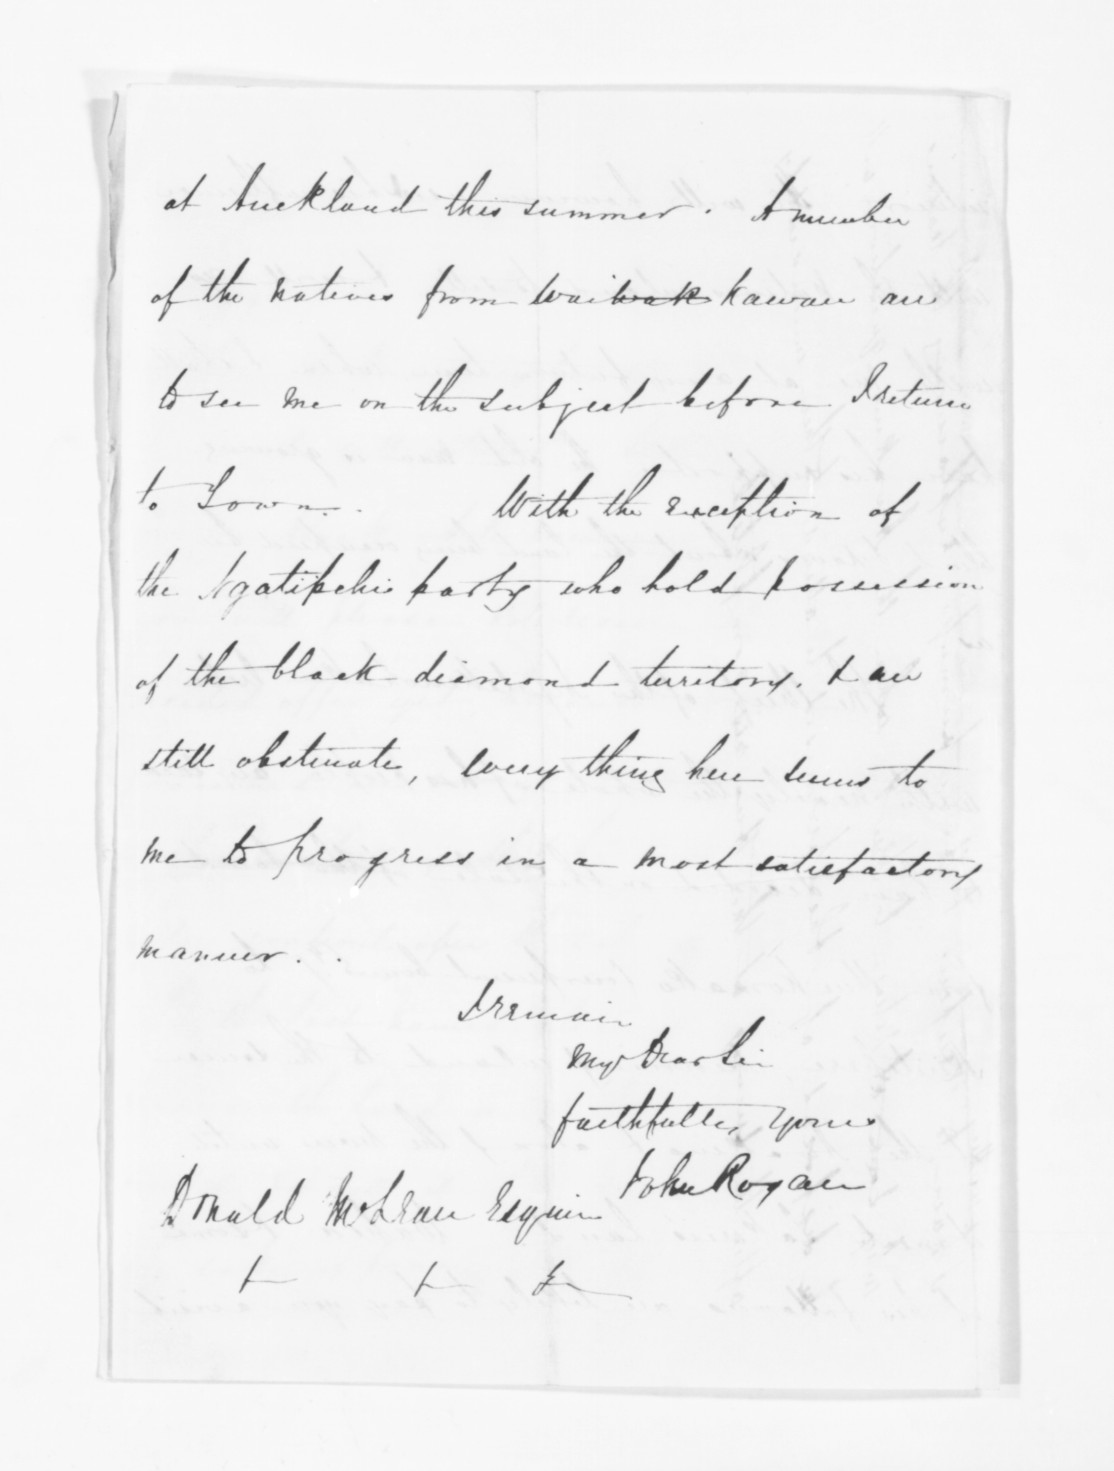 at Auckland this summer. A number
of the natives from Waiwak Kawau are
to see me on the subject before I return
to Town. With the exception of
the Ngatipehi party who hold possession
of the black diamond territory. & are
still obstinate, every thing here seems to
me to progress in a most satisfactory
manner.
I remain
My Dear Sir
faithfully Yours
John Rogan
Donald McLean Esquire
& & &